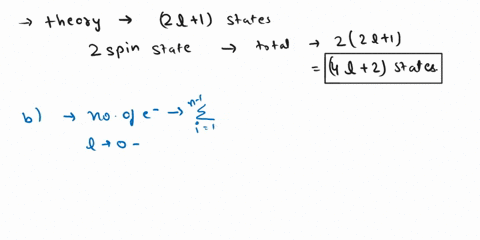 → theory → (2l+1) states
2 spin state → total → 2(2l+1)
= (4l+2) states
b) → no. of e⁻ → n-1 Σ i=1
l → 0 -